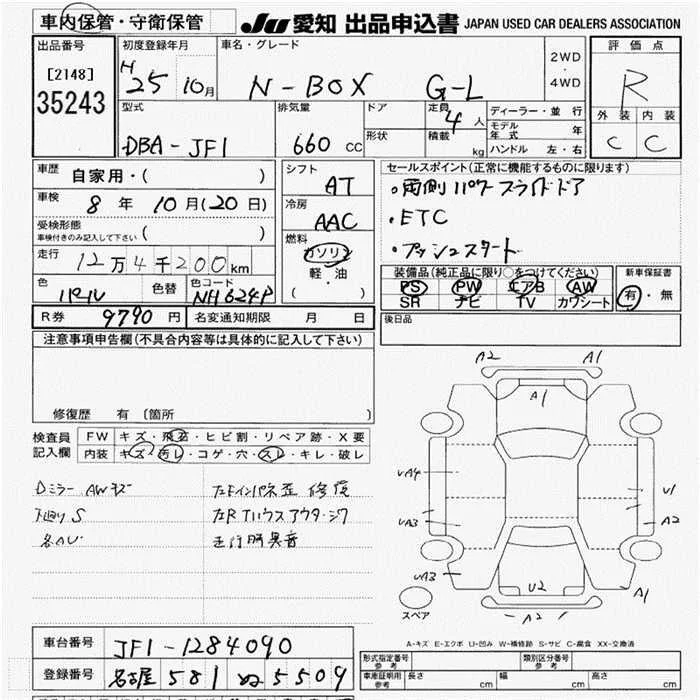 車内保管・守衛保管
JU 愛知 出品申込書 JAPAN USED CAR DEALERS ASSOCIATION
出品番号 初度登録年月 車名・グレード 2WD・4WD 評価点
[2148]
35243
H25 10月 N-BOX G-L R
型式 排気量 ドア 定員 4人 ディーラー・並行 外装 内装
DBA-JF1 660 CC 形状 積載 kg モデル年式 年 C C
ハンドル 左・右
車歴 自家用・( ) シフト AT セールスポイント(正常に機能するものに限ります)
車検 8年 10月(20日) 冷房 AAC ・両側パワースライドドア
受検形態 ( ) ・ETC
車検付きのみ記入して下さい 燃料 ガソリン ・プッシュスタート
走行 12万4千200km 軽・油 ( )
装備品(純正品に限り○をつけてください) 新車保証書
色 パール 色替 色コード NH624P PS PW エアB AW 有・無
SR ナビ TV カワシート
R券 9790円 名変通知期限 月 日 後日品
注意事項申告欄(不具合内容等は具体的に記入して下さい)
修復歴 有 〔箇所 〕
検査員記入欄 FW キズ・飛石・ヒビ割・リペア跡・X要
内装 キズ・汚レ・コゲ・穴・スレ・キレ・破レ
Dミラー AWキズ 左Fインパネ歪 修復
下廻りS 左RTハウスアウタージワ
各AU 走行時異音
A2 A1
A1
UA4
UA3
UA3
U1
A2
A1
U2
A2
スペア
A-キズ E-エクボ U-凹み W-補修跡 S-サビ C-腐食 XX-交換済
車台番号 JF1-1284090
形式指定番号 参考 類別区分番号 参考
登録番号 名古屋 581 ぬ 5509
車庫証明用 参考 長さ cm 幅 cm 高さ cm